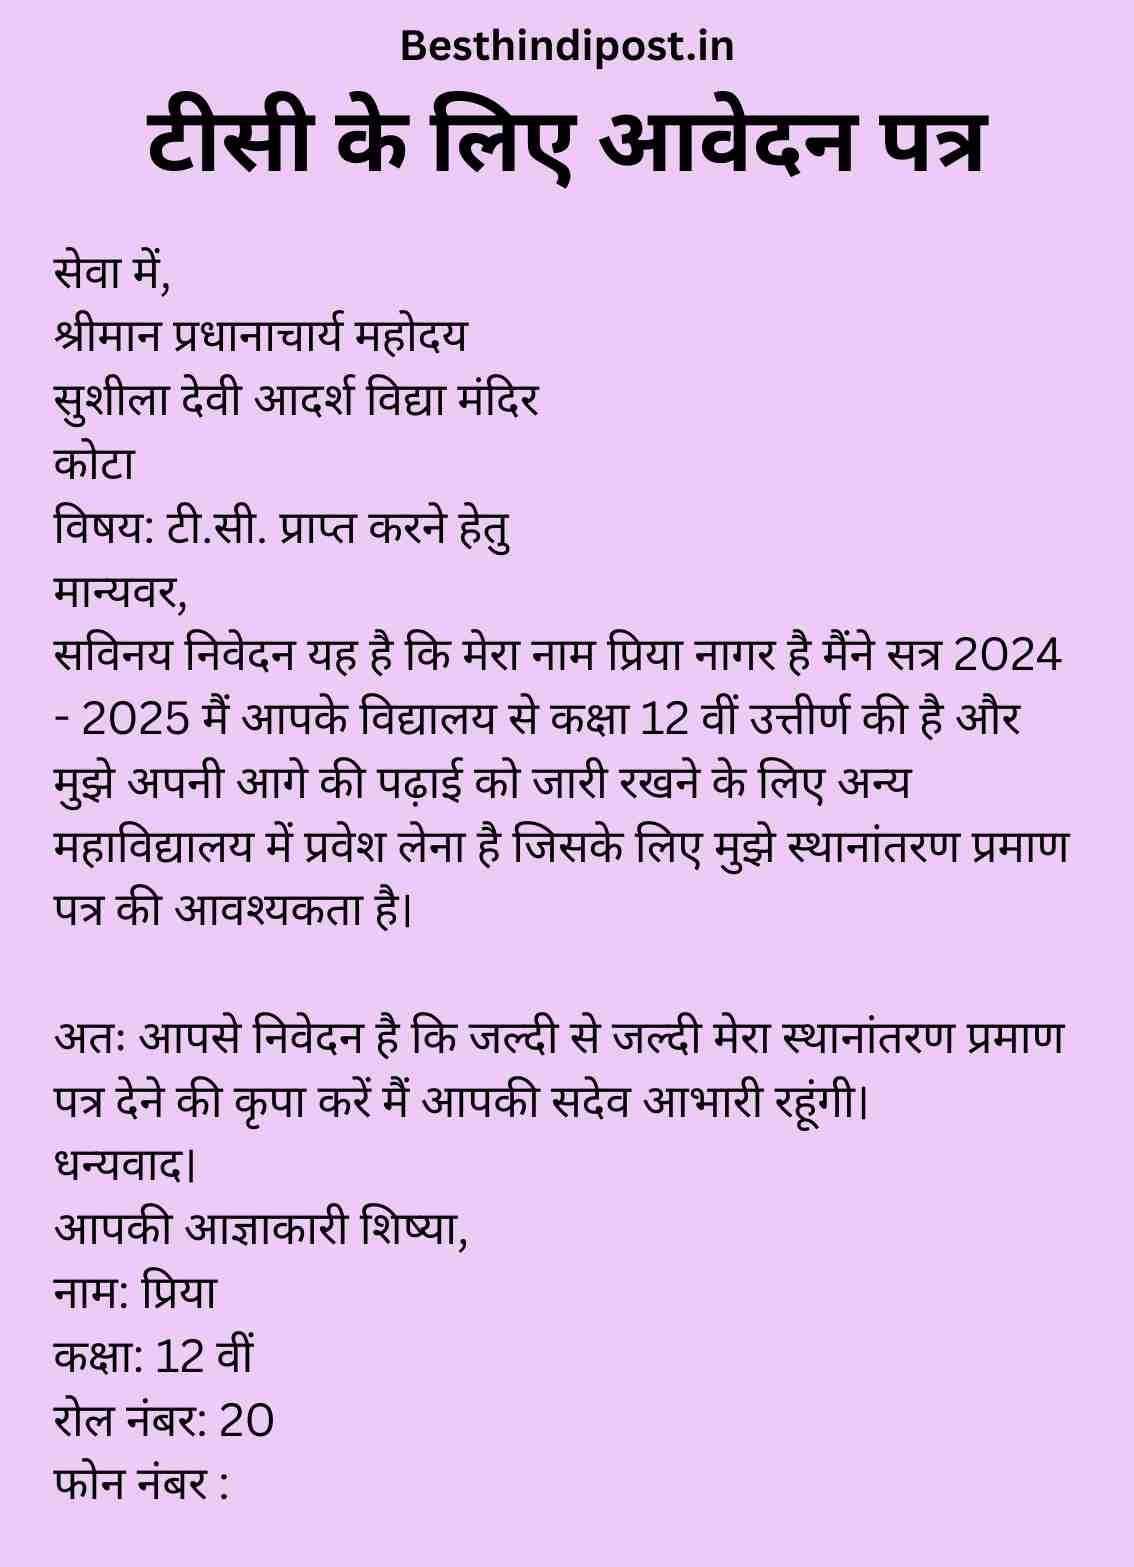 Besthindipost.in
टीसी के लिए आवेदन पत्र
सेवा में,
श्रीमान प्रधानाचार्य महोदय
सुशीला देवी आदर्श विद्या मंदिर
कोटा
विषय: टी.सी. प्राप्त करने हेतु
मान्यवर,
सविनय निवेदन यह है कि मेरा नाम प्रिया नागर है मैंने सत्र 2024
- 2025 मैं आपके विद्यालय से कक्षा 12 वीं उत्तीर्ण की है और
मुझे अपनी आगे की पढ़ाई को जारी रखने के लिए अन्य
महाविद्यालय में प्रवेश लेना है जिसके लिए मुझे स्थानांतरण प्रमाण
पत्र की आवश्यकता है।
अतः आपसे निवेदन है कि जल्दी से जल्दी मेरा स्थानांतरण प्रमाण
पत्र देने की कृपा करें मैं आपकी सदेव आभारी रहूंगी।
धन्यवाद।
आपकी आज्ञाकारी शिष्या,
नाम: प्रिया
कक्षा: 12 वीं
रोल नंबर: 20
फोन नंबर :